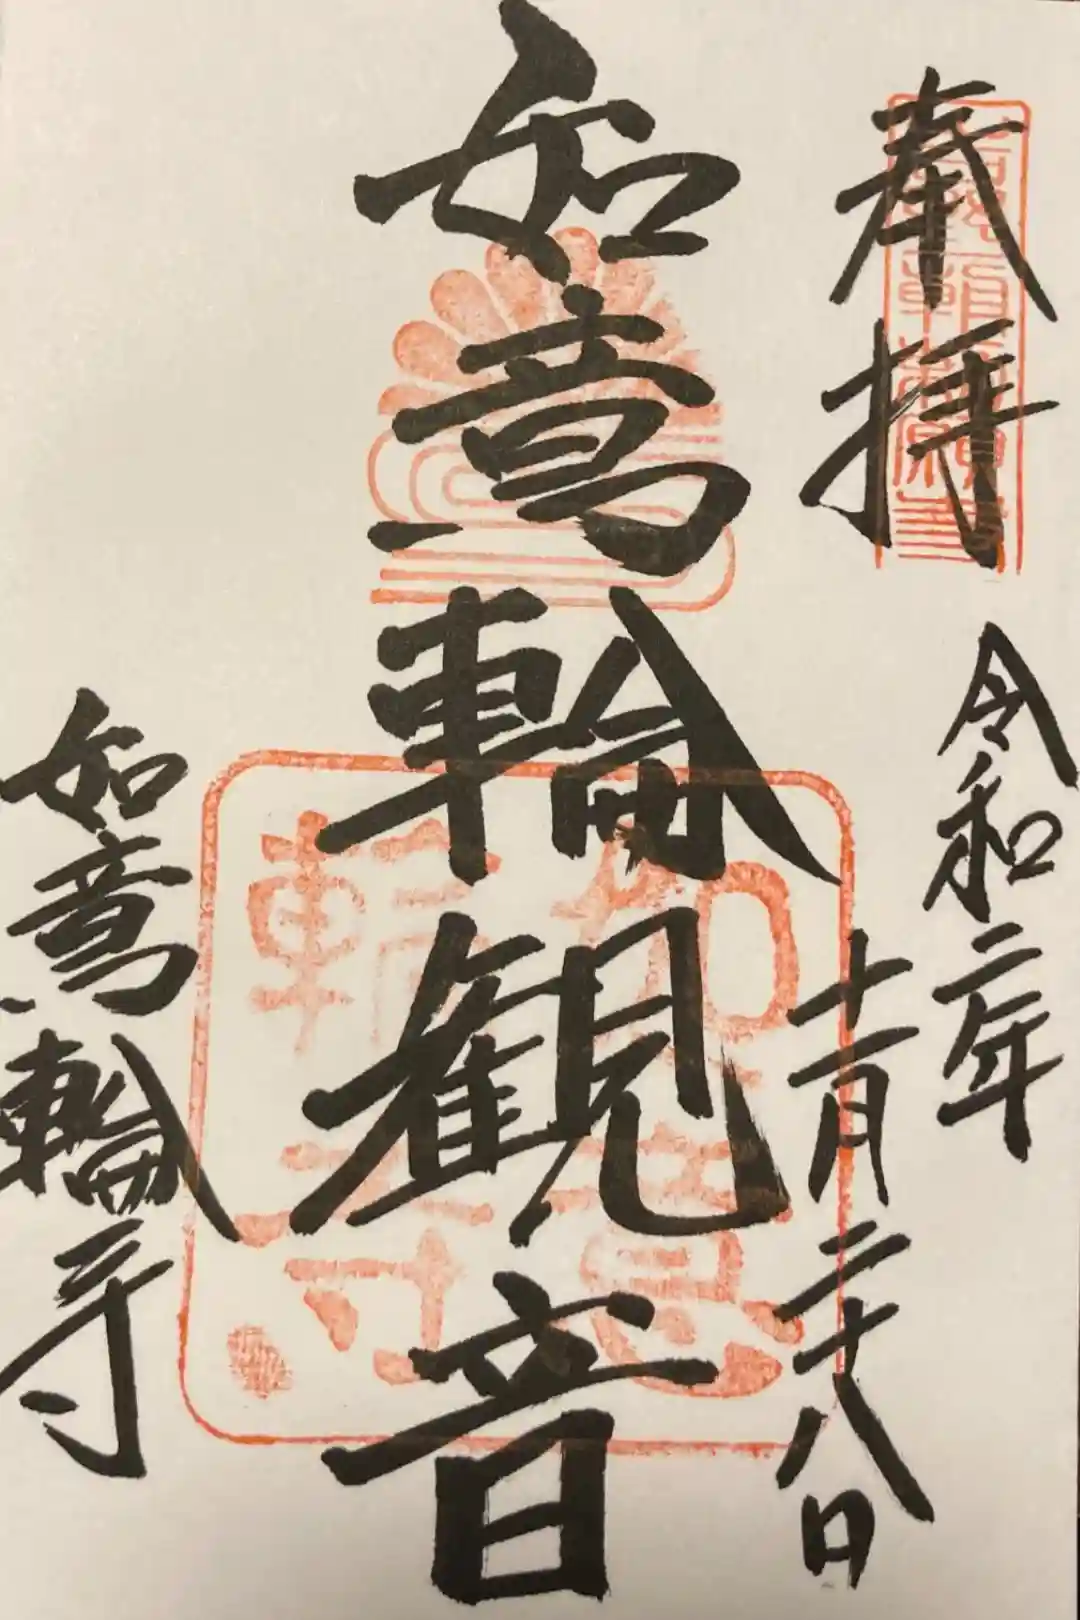 奉拝
令和二年
十一月二十八日
如意輪観音
如意輪寺
如意輪寺